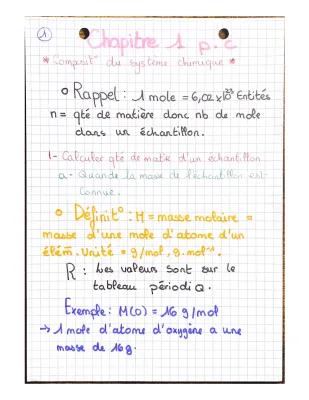 1
Chapitre 1 p.c
* Composit° du système chimique *
o Rappel : 1 mole = 6,02 x 10²³ Entités
n = qté de matière donc nb de mole
dans un échantillon.
1- Calculer qté de matiè d'un échantillon
a- Quande la masse de l'échantillon est
connue.
o Définit° : M = masse molaire =
masse d'une mole d'atome d'un
élém. Unité = g/mol, g.mol⁻¹.
R : Les valeurs sont sur le
tableau périodiQ.
Exemple : M(O) = 16 g/mol
→ 1 mole d'atome d'oxygène a une
masse de 16g.